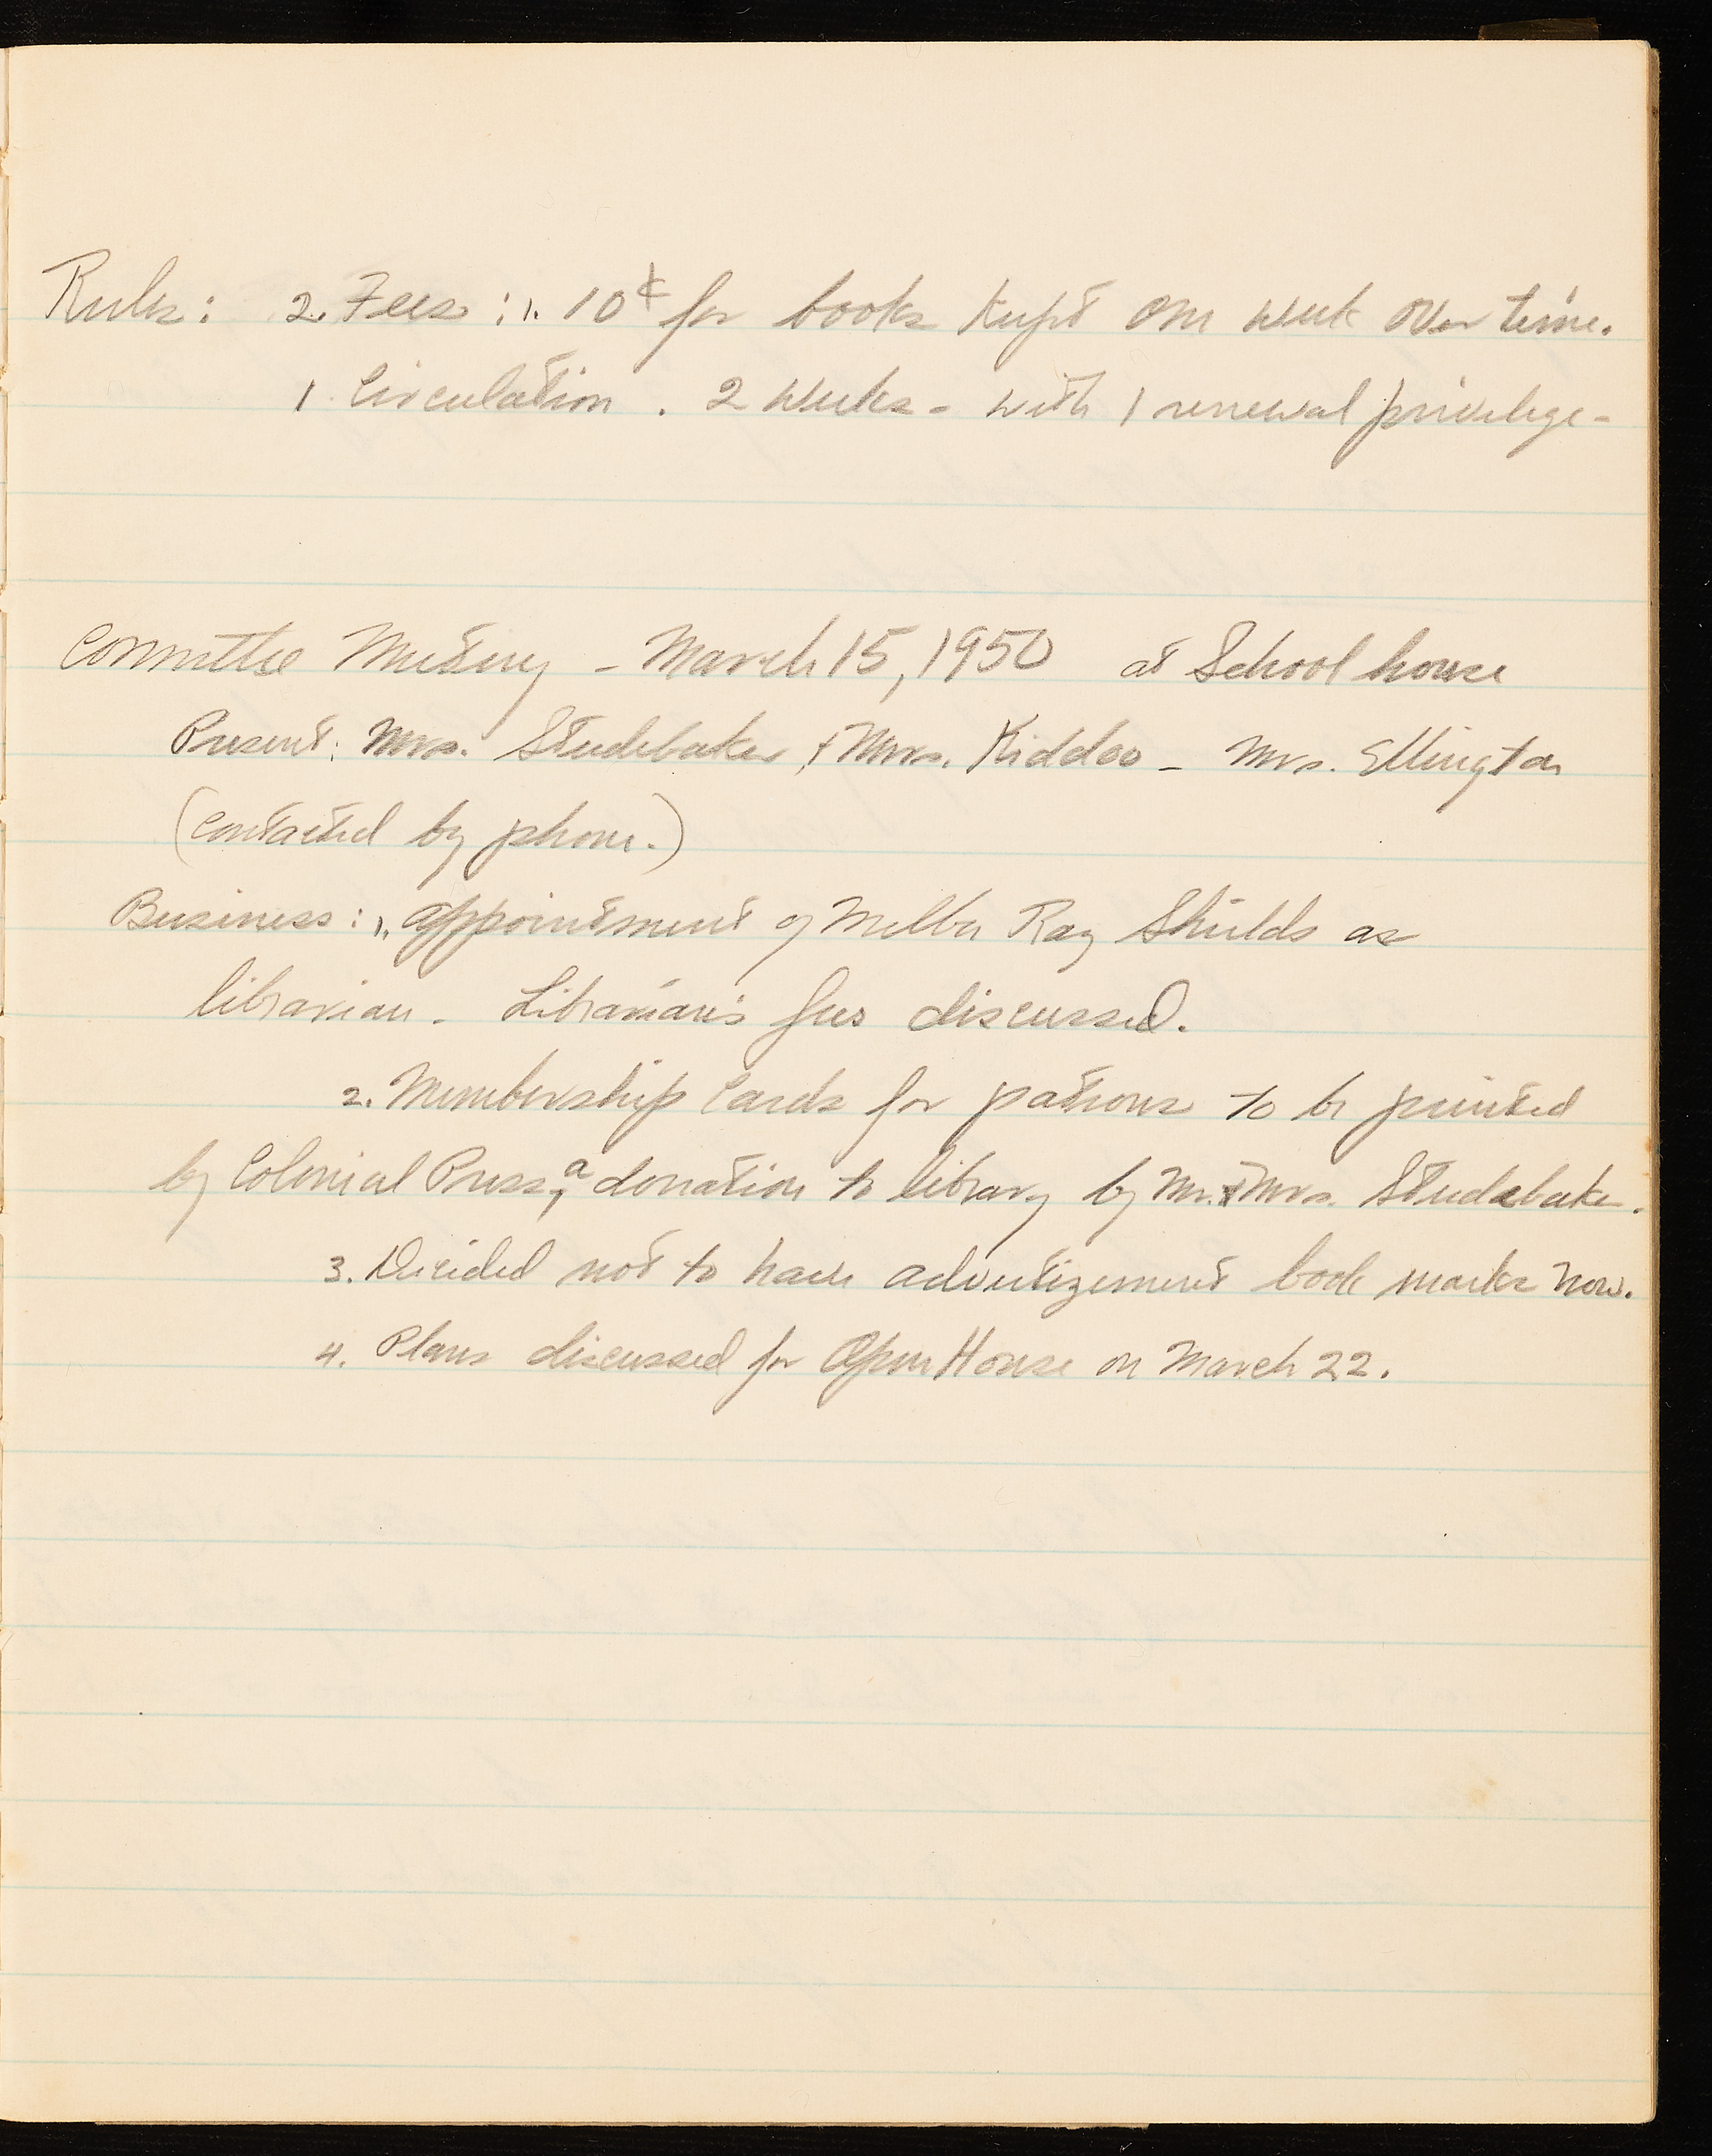 Rules: 2. Fees: 1. 10¢ for books kept one week over time.
1. Circulation. 2 weeks - with 1 renewal privilege -
Committee Meeting - March 15, 1950 at School house
Present: Mrs. Studebaker, & Mrs. Kiddoo - Mrs. Ellington
(contacted by phone.)
Business: 1. appointment of Melba Ray Shields as
librarian - Librarian's fees discussed.
2. Membership Cards for patrons to be printed
by Colonial Press, a donation to library by Mr. & Mrs. Studebaker.
3. Decided not to have advertizement book marks now.
4. Plans discussed for Open House on March 22.